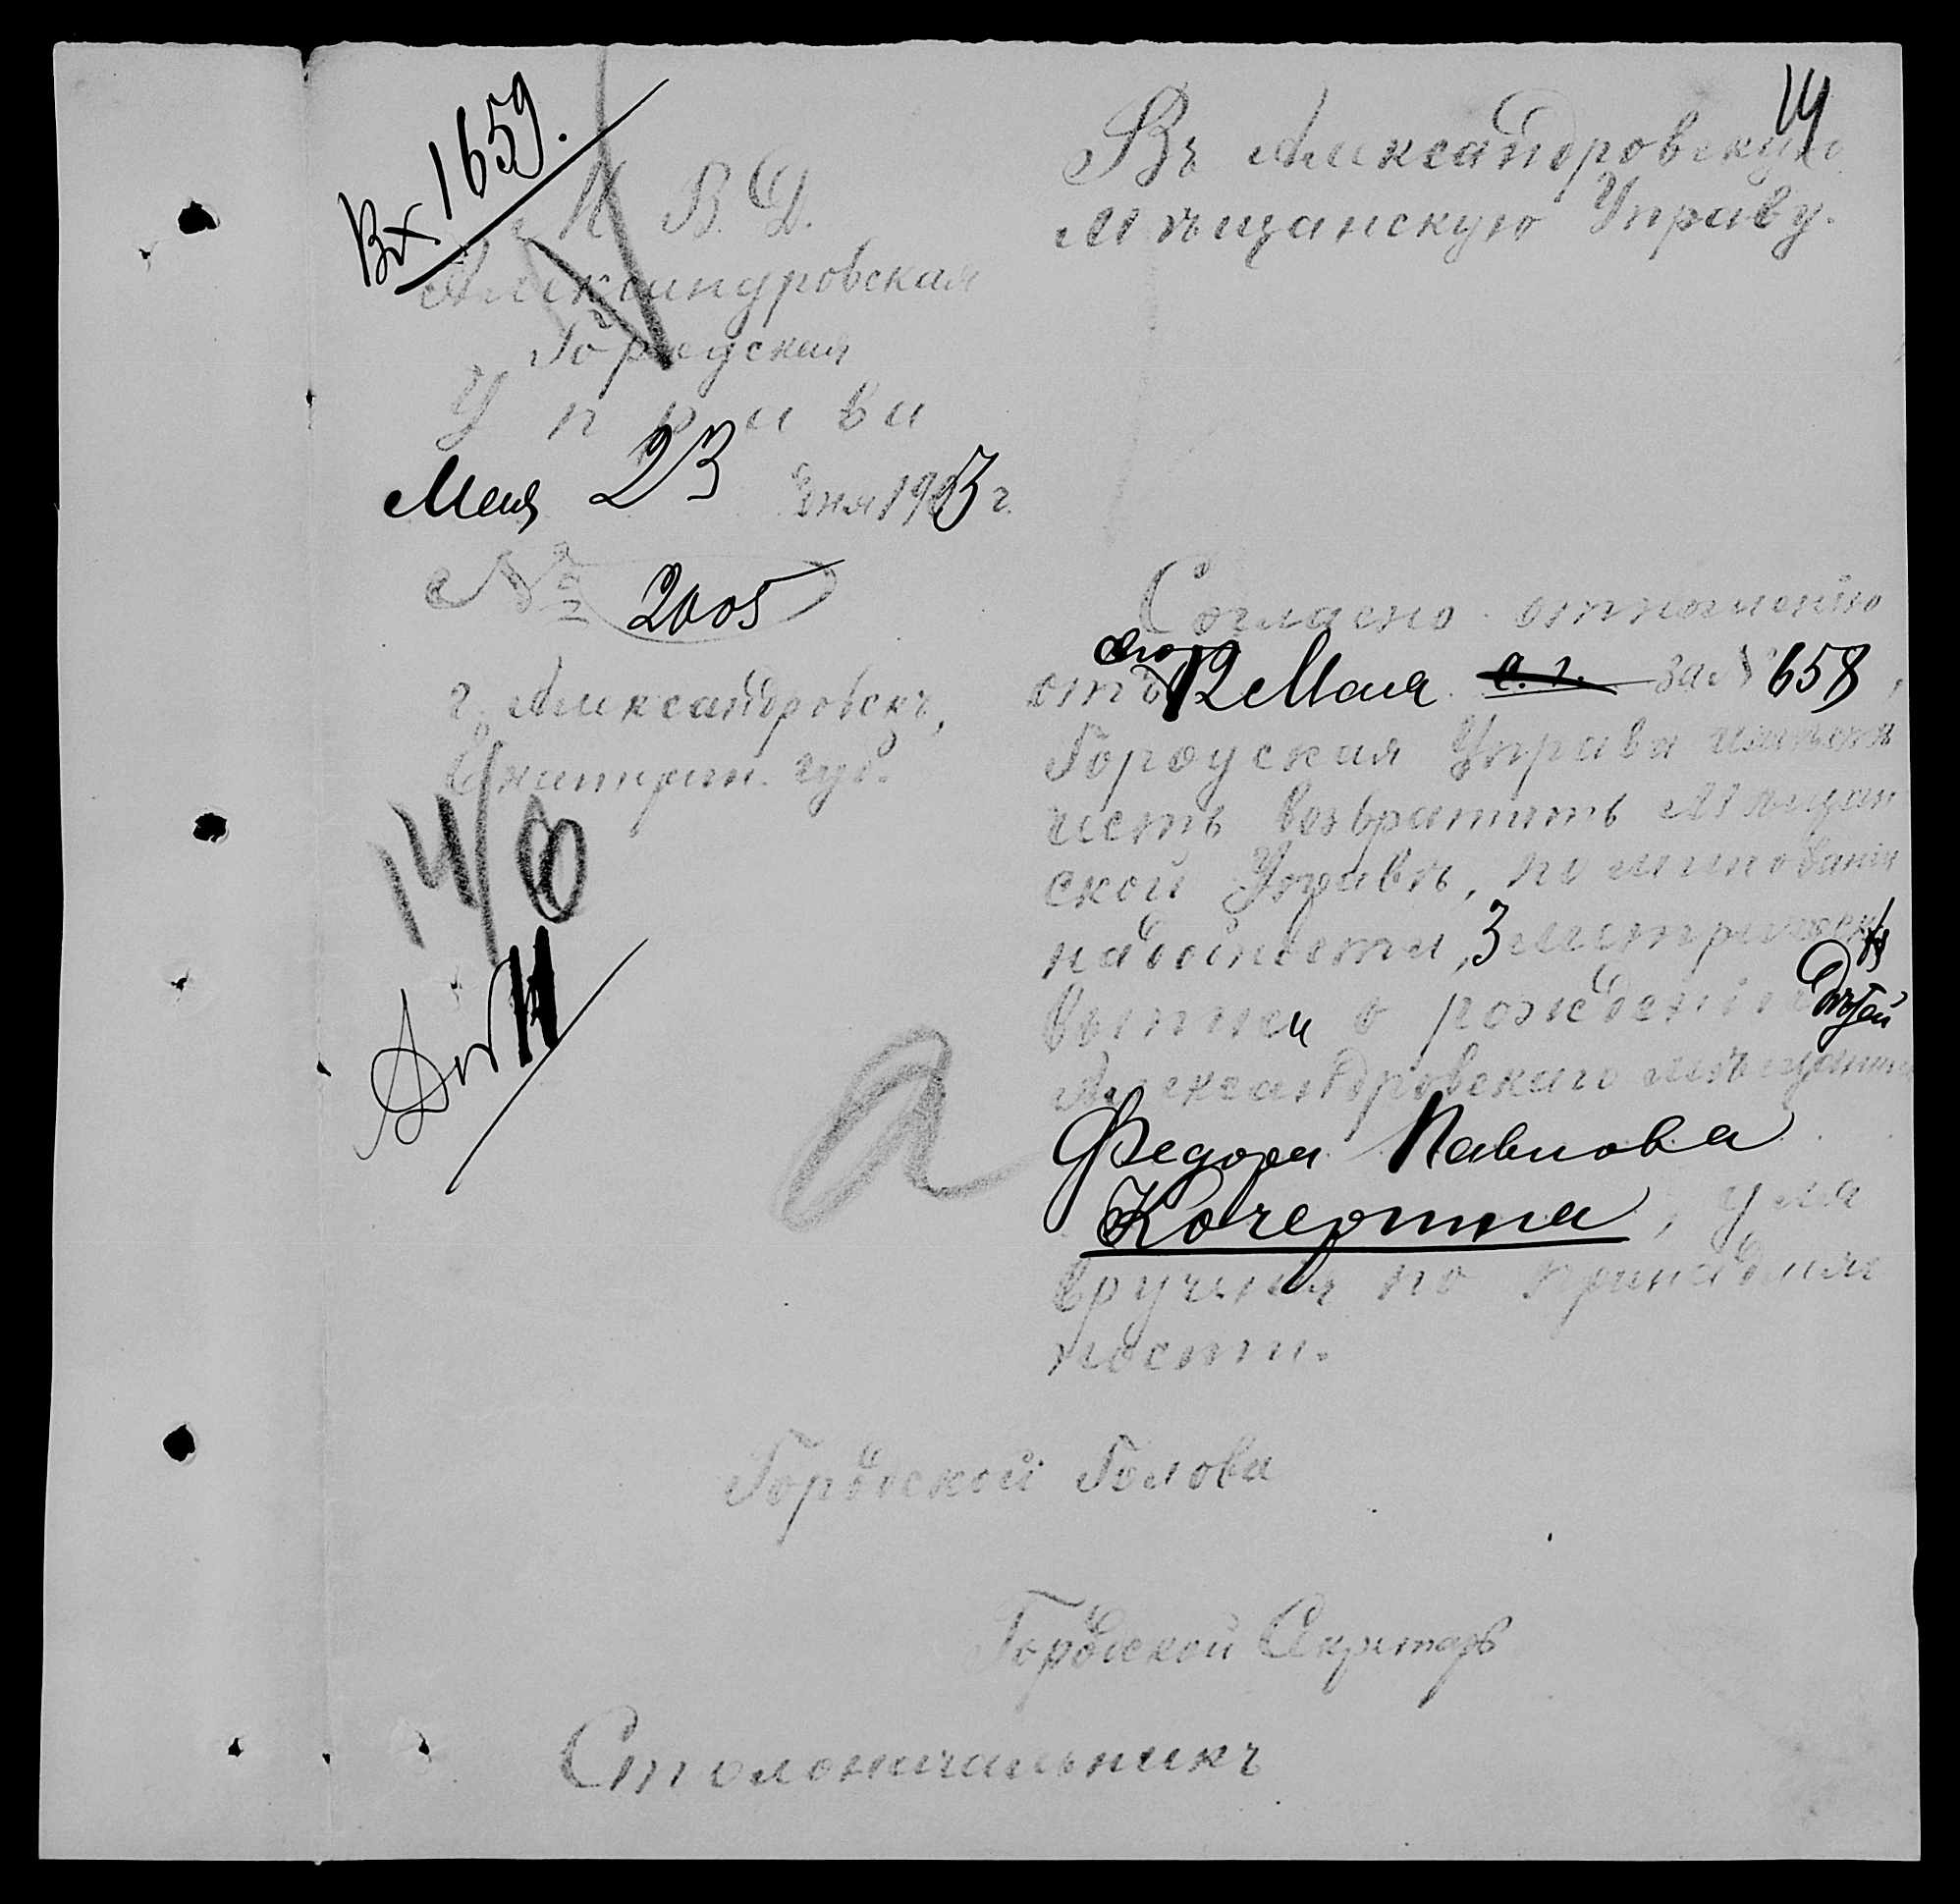 14
Вх 1659.
М. В. Д.
Александровская
Городская
Управа
Мая 23 дня 1903 г.
№ 2005
г. Александровскъ,
Екатерин. губ.
14/
Въ Александровскую
Мѣщанскую Управу.
Согласно отношенію
отъ 12 Мая с. г. за № 658,
Городская Управа имѣетъ
честь возвратить Мѣщан
ской Управѣ, по миновании
надобности, 3 метрическ
выписи о рожденіи дѣтей
Александровскаго мѣщанина
Федора Павлова
Кочергина, для
врученія по принадлеж
ности.
Городской Голова
Городской Секретарь
Столоначальникъ